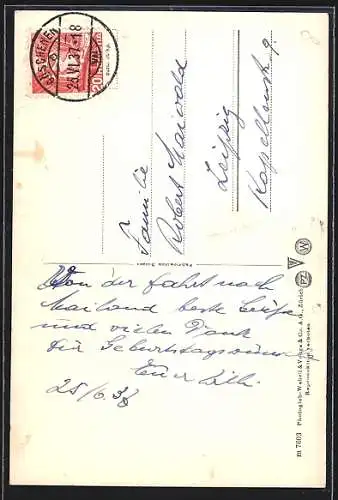 GÖSCHENEN
25.VI.37-18
20
Familie
Robert Maiwald
Leipzig
Kapellenstr. 9
Fabrication Suisse
Von der Fahrt nach
Mailand beste Grüße
und vielen Dank
für Geburtstagswünsche
Euer Willi
25/6.38
m 7603 Photoglob-Wehrli & Vouga & Co. A.G., Zürich
PZ V W